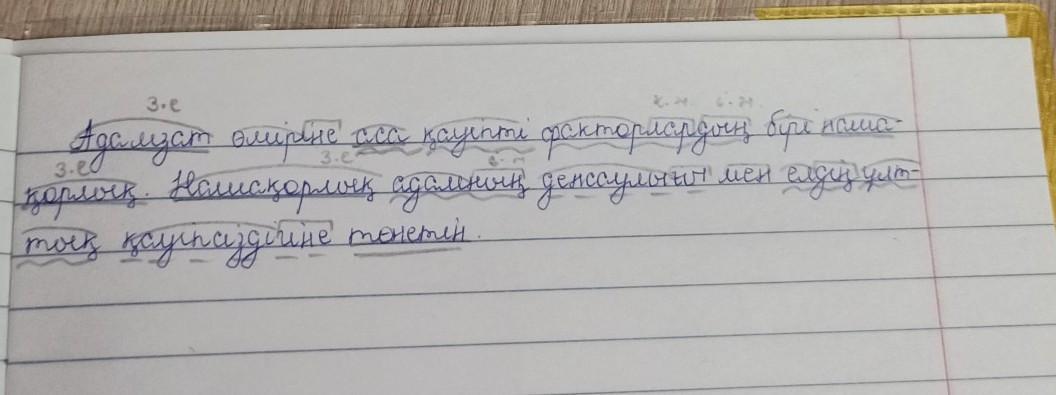 з.е к.ж. і.ж.
Адамзат өміріне аса қауіпті факторлардың бірі наша-
з.е з.е
қорлық. Нашақорлық адамның денсаулығы мен елдің ұлт-
тық қауіпсіздігіне төнетін.